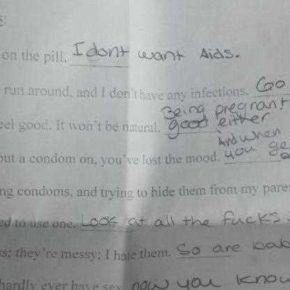 on the pill. I dont want Aids.
run around, and I don't have any infections. Go
Being pregnant
feel good. It won't be natural. good either
And when
put a condom on, you've lost the mood. you ge
ng condoms, and trying to hide them from my pare
ed to use one. Look at all the fucks.
s; they're messy; I hate them. So are bab
hardly ever have sex. now you know